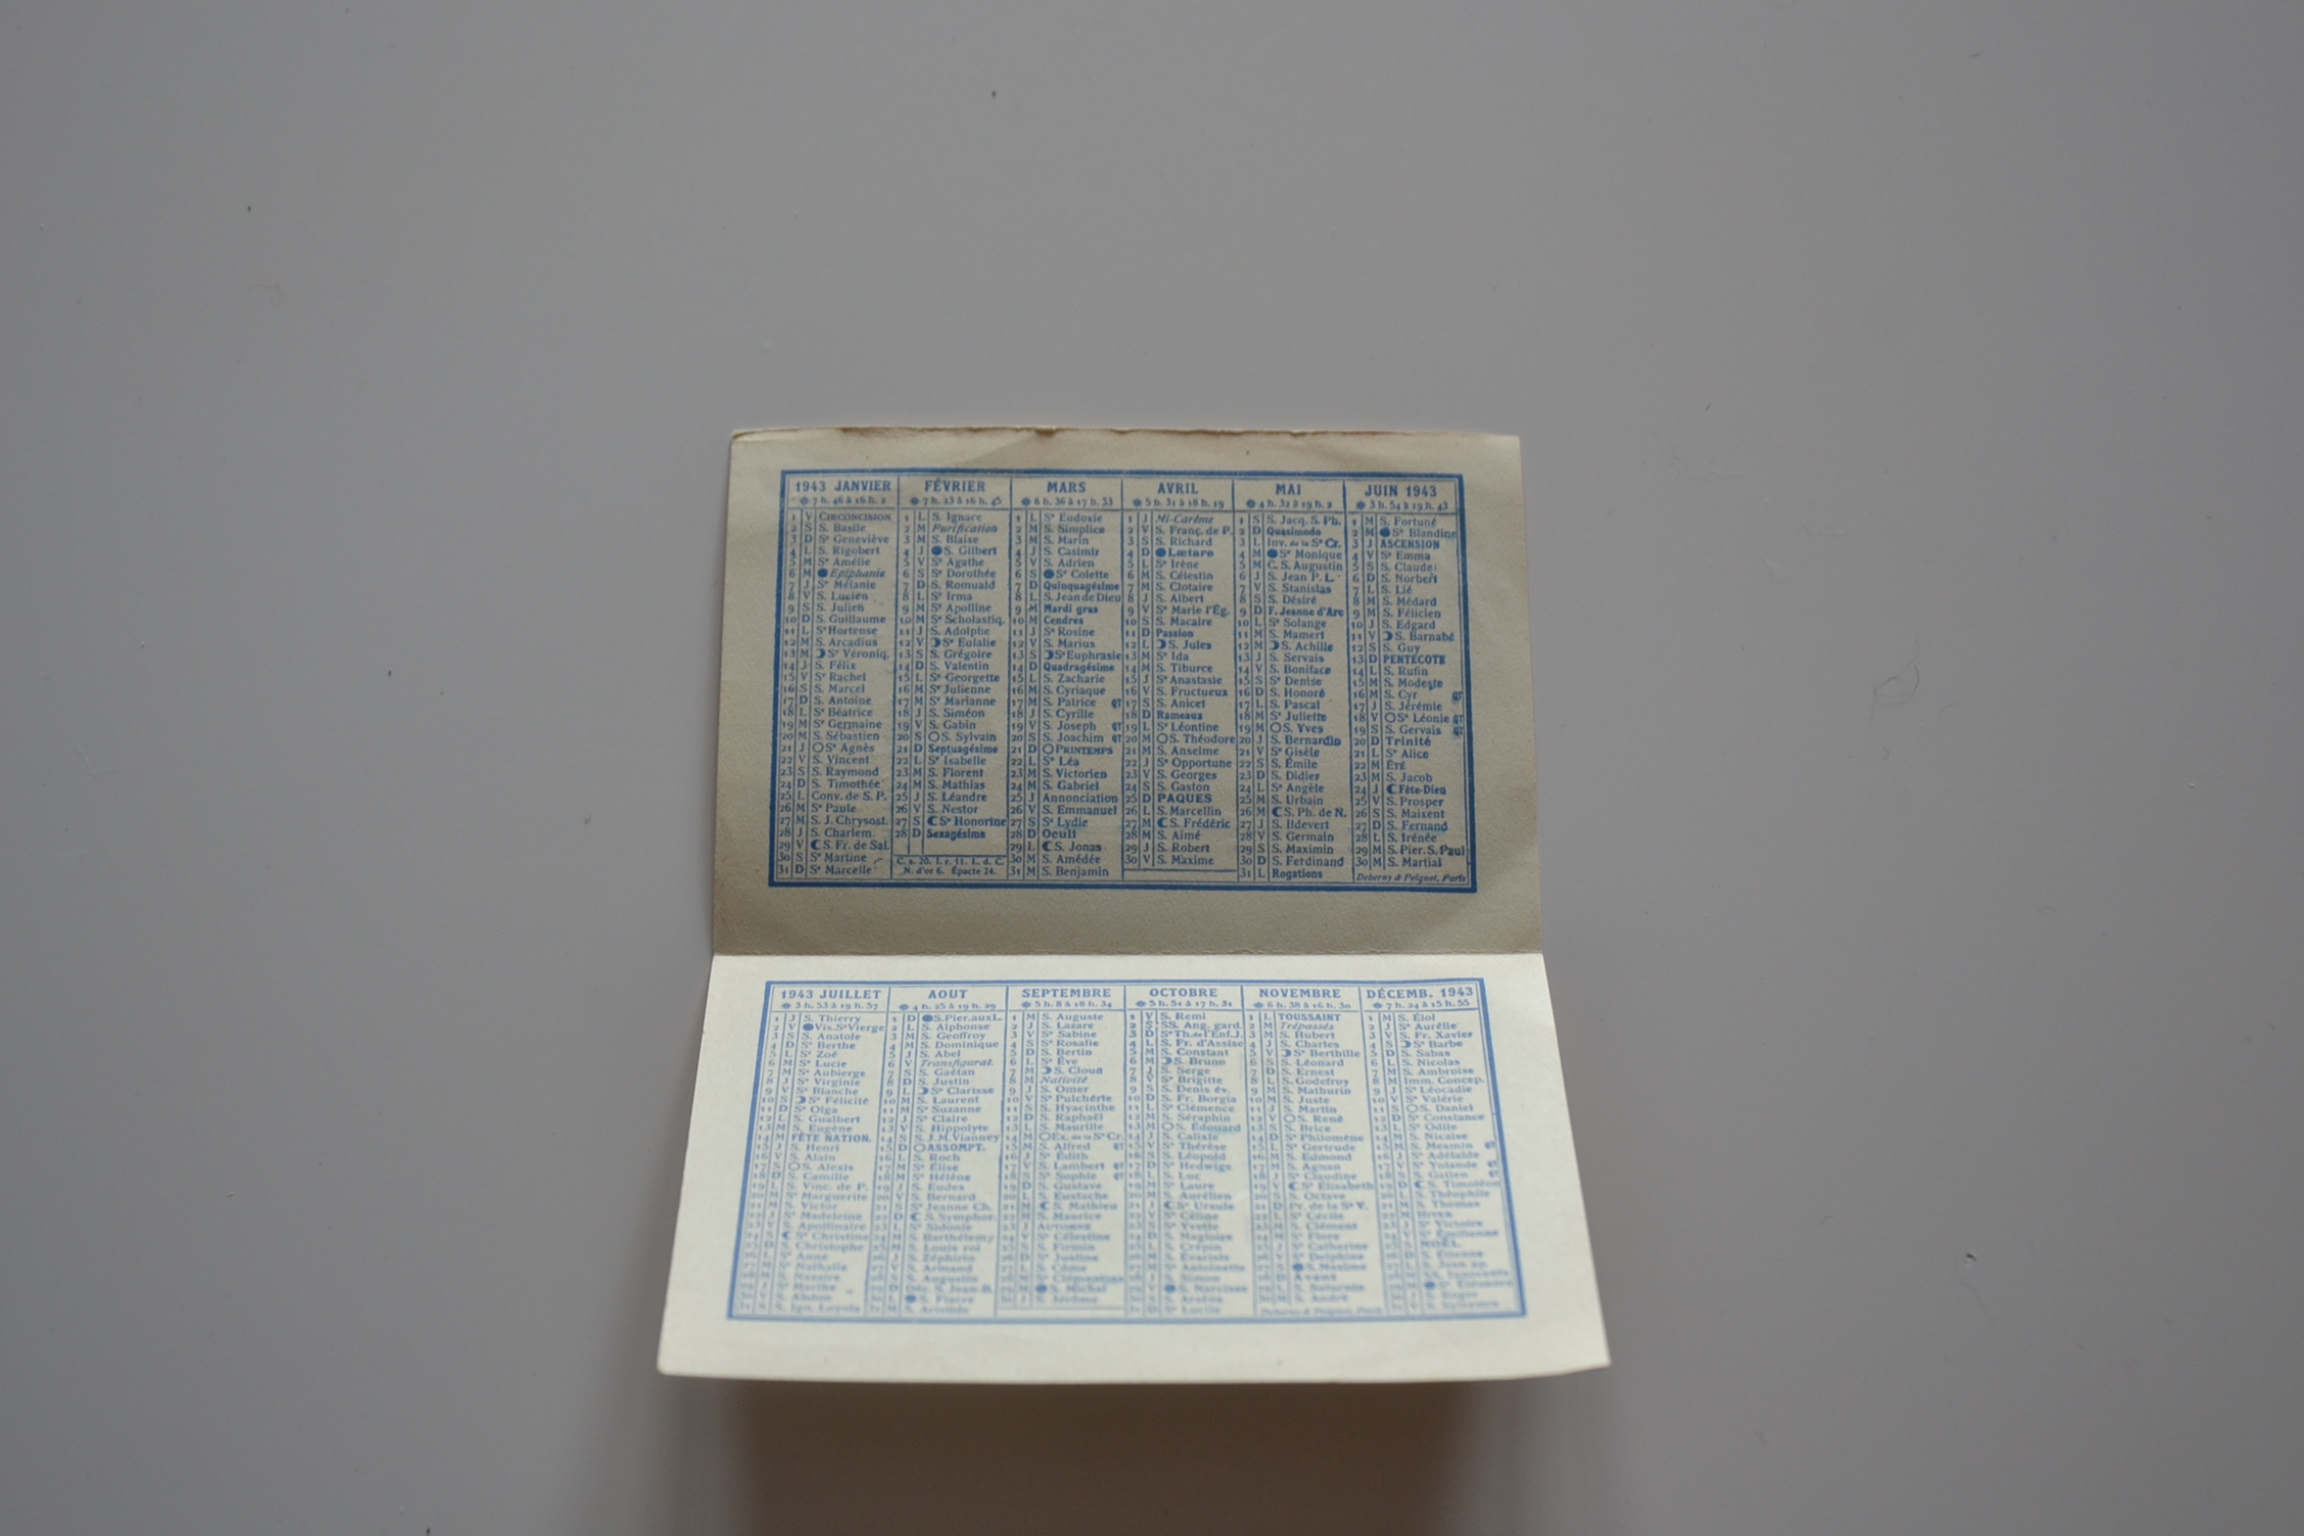 1943 JANVIER
7 h. 46 à 16 h. 2
1 V CIRCONCISION
2 S S. Basile
3 D Sᵉ Geneviève
4 L S. Rigobert
5 M Sᵉ Amélie
6 M Epiphanie
7 J Sᵉ Mélanie
8 V S. Lucien
9 S S. Julien
10 D S. Guillaume
11 L Sᵉ Hortense
12 M S. Arcadius
13 M Sᵉ Véroniq.
14 J S. Félix
15 V Sᵉ Rachel
16 S S. Marcel
17 D S. Antoine
18 L Sᵉ Béatrice
19 M Sᵉ Germaine
20 M S. Sébastien
21 J Sᵉ Agnès
22 V S. Vincent
23 S S. Raymond
24 D S. Timothée
25 L Conv. de S. P.
26 M Sᵉ Paule
27 M S. J. Chrysost.
28 J S. Charlem.
29 V S. Fr. de Sal.
30 S Sᵉ Martine
31 D Sᵉ Marcelle
FÉVRIER
7 h. 23 à 16 h. 45
1 L S. Ignace
2 M Purification
3 M S. Blaise
4 J S. Gilbert
5 V Sᵉ Agathe
6 S Sᵉ Dorothée
7 D S. Romuald
8 L Sᵉ Irma
9 M Sᵉ Apolline
10 M Sᵉ Scholastiq.
11 J S. Adolphe
12 V Sᵉ Eulalie
13 S S. Grégoire
14 D S. Valentin
15 L Sᵉ Georgette
16 M Sᵉ Julienne
17 M Sᵉ Marianne
18 J S. Siméon
19 V S. Gabin
20 S S. Sylvain
21 D Septuagésime
22 L Sᵉ Isabelle
23 M S. Florent
24 M S. Mathias
25 J S. Léandre
26 V S. Nestor
27 S Sᵉ Honorine
28 D Sexagésime
C. s. 20. I. r. 11. L. d. C.
N. d'or 6. Épacte 24.
MARS
6 h. 36 à 17 h. 33
1 L Sᵉ Eudoxie
2 M S. Simplice
3 M S. Marin
4 J S. Casimir
5 V S. Adrien
6 S Sᵉ Colette
7 D Quinquagésime
8 L S. Jean de Dieu
9 M Mardi gras
10 M Cendres
11 J Sᵉ Rosine
12 V S. Marius
13 S Sᵉ Euphrasie
14 D Quadragésime
15 L S. Zacharie
16 M S. Cyriaque
17 M S. Patrice QT
18 J S. Cyrille
19 V S. Joseph QT
20 S S. Joachim QT
21 D PRINTEMPS
22 L Sᵉ Léa
23 M S. Victorien
24 M S. Gabriel
25 J Annonciation
26 V S. Emmanuel
27 S Sᵉ Lydie
28 D Oculi
29 L S. Jonas
30 M S. Amédée
31 M S. Benjamin
AVRIL
5 h. 31 à 18 h. 19
1 J Mi-Carême
2 V S. Franç. de P.
3 S S. Richard
4 D Lætare
5 L Sᵉ Irène
6 M S. Célestin
7 M S. Clotaire
8 J S. Albert
9 V Sᵉ Marie l'Ég.
10 S S. Macaire
11 D Passion
12 L S. Jules
13 M Sᵉ Ida
14 M S. Tiburce
15 J Sᵉ Anastasie
16 V S. Fructueux
17 S S. Anicet
18 D Rameaux
19 L Sᵉ Léontine
20 M S. Théodore
21 M S. Anselme
22 J Sᵉ Opportune
23 V S. Georges
24 S S. Gaston
25 D PAQUES
26 L S. Marcellin
27 M S. Frédéric
28 M S. Aimé
29 J S. Robert
30 V S. Maxime
MAI
4 h. 32 à 19 h. 2
1 S S. Jacq. S. Ph.
2 D Quasimodo
3 L Inv. de la Sᵉ Cr.
4 M Sᵉ Monique
5 M C. S. Augustin
6 J S. Jean P. L.
7 V S. Stanislas
8 S S. Désiré
9 D F. Jeanne d'Arc
10 L Sᵉ Solange
11 M S. Mamert
12 M S. Achille
13 J S. Servais
14 V S. Boniface
15 S Sᵉ Denise
16 D S. Honoré
17 L S. Pascal
18 M Sᵉ Juliette
19 M S. Yves
20 J S. Bernardin
21 V Sᵉ Gisèle
22 S S. Émile
23 D S. Didier
24 L Sᵉ Angèle
25 M S. Urbain
26 M S. Ph. de N.
27 J S. Ildevert
28 V S. Germain
29 S S. Maximin
30 D S. Ferdinand
31 L Rogations
JUIN 1943
3 h. 54 à 19 h. 43
1 M S. Fortuné
2 M Sᵉ Blandine
3 J ASCENSION
4 V Sᵉ Emma
5 S S. Claude
6 D S. Norbert
7 L S. Lié
8 M S. Médard
9 M S. Félicien
10 J S. Edgard
11 V S. Barnabé
12 S S. Guy
13 D PENTECOTE
14 L S. Rufin
15 M S. Modeste
16 M S. Cyr QT
17 J S. Jérémie
18 V Sᵉ Léonie QT
19 S S. Gervais QT
20 D Trinité
21 L Sᵉ Alice
22 M ÉTÉ
23 M S. Jacob
24 J Fête-Dieu
25 V S. Prosper
26 S S. Maixent
27 D S. Fernand
28 L S. Irénée
29 M S. Pier. S. Paul
30 M S. Martial
Deberny & Peignot, Paris
1943 JUILLET
3 h. 53 à 19 h. 57
1 J S. Thierry
2 V Vis. Sᵉ Vierge
3 S S. Anatole
4 D Sᵉ Berthe
5 L Sᵉ Zoé
6 M Sᵉ Lucie
7 M Sᵉ Aubierge
8 J Sᵉ Virginie
9 V Sᵉ Blanche
10 S Sᵉ Félicité
11 D Sᵉ Olga
12 L S. Gualbert
13 M S. Eugène
14 M FÊTE NATION.
15 J S. Henri
16 V S. Alain
17 S S. Alexis
18 D S. Camille
19 L S. Vinc. de P.
20 M Sᵉ Marguerite
21 M S. Victor
22 J Sᵉ Madeleine
23 V S. Apollinaire
24 S Sᵉ Christine
25 D S. Christophe
26 L Sᵉ Anne
27 M Sᵉ Nathalie
28 M S. Nazaire
29 J Sᵉ Marthe
30 V S. Abdon
31 S S. Ign. Loyola
AOUT
4 h. 25 à 19 h. 29
1 D S. Pier. aux L.
2 L S. Alphonse
3 M S. Geoffroy
4 M S. Dominique
5 J S. Abel
6 V Transfigurat.
7 S S. Gaétan
8 D S. Justin
9 L Sᵉ Clarisse
10 M S. Laurent
11 M Sᵉ Suzanne
12 J Sᵉ Claire
13 V S. Hippolyte
14 S S. J. M. Vianney
15 D ASSOMPT.
16 L S. Roch
17 M S. Élise
18 M Sᵉ Hélène
19 J S. Eudes
20 V S. Bernard
21 S Sᵉ Jeanne Ch.
22 D S. Symphor.
23 L S. Sidonie
24 M S. Barthélemy
25 M S. Louis roi
26 J S. Zéphirin
27 V S. Armand
28 S S. Augustin
29 D Déc. S. Jean-B.
30 L S. Fiacre
31 M S. Aristide
SEPTEMBRE
5 h. 8 à 18 h. 34
1 M S. Auguste
2 J S. Lazare
3 V Sᵉ Sabine
4 S Sᵉ Rosalie
5 D S. Bertin
6 L Sᵉ Ève
7 M S. Cloud
8 M Nativité
9 J S. Omer
10 V Sᵉ Pulchérie
11 S S. Hyacinthe
12 D S. Raphaël
13 L S. Maurille
14 M Ex. de la Sᵉ Cr.
15 M S. Alfred QT
16 J Sᵉ Édith
17 V S. Lambert QT
18 S Sᵉ Sophie QT
19 D S. Gustave
20 L S. Eustache
21 M S. Mathieu
22 M S. Maurice
23 J AUTOMNE
24 V Sᵉ Célestine
25 S S. Firmin
26 D Sᵉ Justine
27 L S. Côme
28 M Sᵉ Clémentine
29 M S. Michel
30 J S. Jérôme
OCTOBRE
5 h. 51 à 17 h. 31
1 V S. Remi
2 S SS. Ang. gard.
3 D Sᵉ Th. de l'Enf. J.
4 L S. Fr. d'Assise
5 M S. Constant
6 M S. Bruno
7 J S. Serge
8 V Sᵉ Brigitte
9 S S. Denis év.
10 D S. Fr. Borgia
11 L Sᵉ Clémence
12 M S. Séraphin
13 M S. Édouard
14 J S. Calixte
15 V Sᵉ Thérèse
16 S S. Léopold
17 D Sᵉ Hedwige
18 L S. Luc
19 M Sᵉ Laure
20 M S. Aurélien
21 J Sᵉ Ursule
22 V Sᵉ Céline
23 S Sᵉ Yvette
24 D S. Magloire
25 L S. Crépin
26 M S. Évariste
27 M Sᵉ Antoinette
28 J S. Simon
29 V S. Narcisse
30 S S. Arsène
31 D Sᵉ Lucile
NOVEMBRE
6 h. 38 à 16 h. 30
1 L TOUSSAINT
2 M Trépassés
3 M S. Hubert
4 J S. Charles
5 V Sᵉ Berthille
6 S S. Léonard
7 D S. Ernest
8 L S. Godefroy
9 M S. Mathurin
10 M S. Juste
11 J S. Martin
12 V S. René
13 S S. Brice
14 D Sᵉ Philomène
15 L Sᵉ Gertrude
16 M S. Edmond
17 M S. Agnan
18 J Sᵉ Claudine
19 V Sᵉ Élisabeth
20 S S. Octave
21 D Pr. de la Sᵉ V.
22 L Sᵉ Cécile
23 M S. Clément
24 M Sᵉ Flore
25 J Sᵉ Catherine
26 V Sᵉ Delphine
27 S S. Maxime
28 D Avent
29 L S. Saturnin
30 M S. André
Deberny & Peignot, Paris
DÉCEMB. 1943
7 h. 24 à 15 h. 55
1 M S. Éloi
2 J Sᵉ Aurélie
3 V S. Fr. Xavier
4 S Sᵉ Barbe
5 D S. Sabas
6 L S. Nicolas
7 M S. Ambroise
8 M Imm. Concep.
9 J Sᵉ Léocadie
10 V Sᵉ Valérie
11 S S. Daniel
12 D Sᵉ Constance
13 L Sᵉ Odile
14 M S. Nicaise
15 M S. Mesmin QT
16 J Sᵉ Adélaïde
17 V Sᵉ Yolande QT
18 S S. Gatien QT
19 D S. Timoléon
20 L S. Théophile
21 M S. Thomas
22 M HIVER
23 J Sᵉ Victoire
24 V Sᵉ Émilienne
25 S NOËL
26 D S. Étienne
27 L S. Jean ap.
28 M SS. Innocents
29 M Sᵉ Éléonore
30 J S. Roger
31 V S. Sylvestre